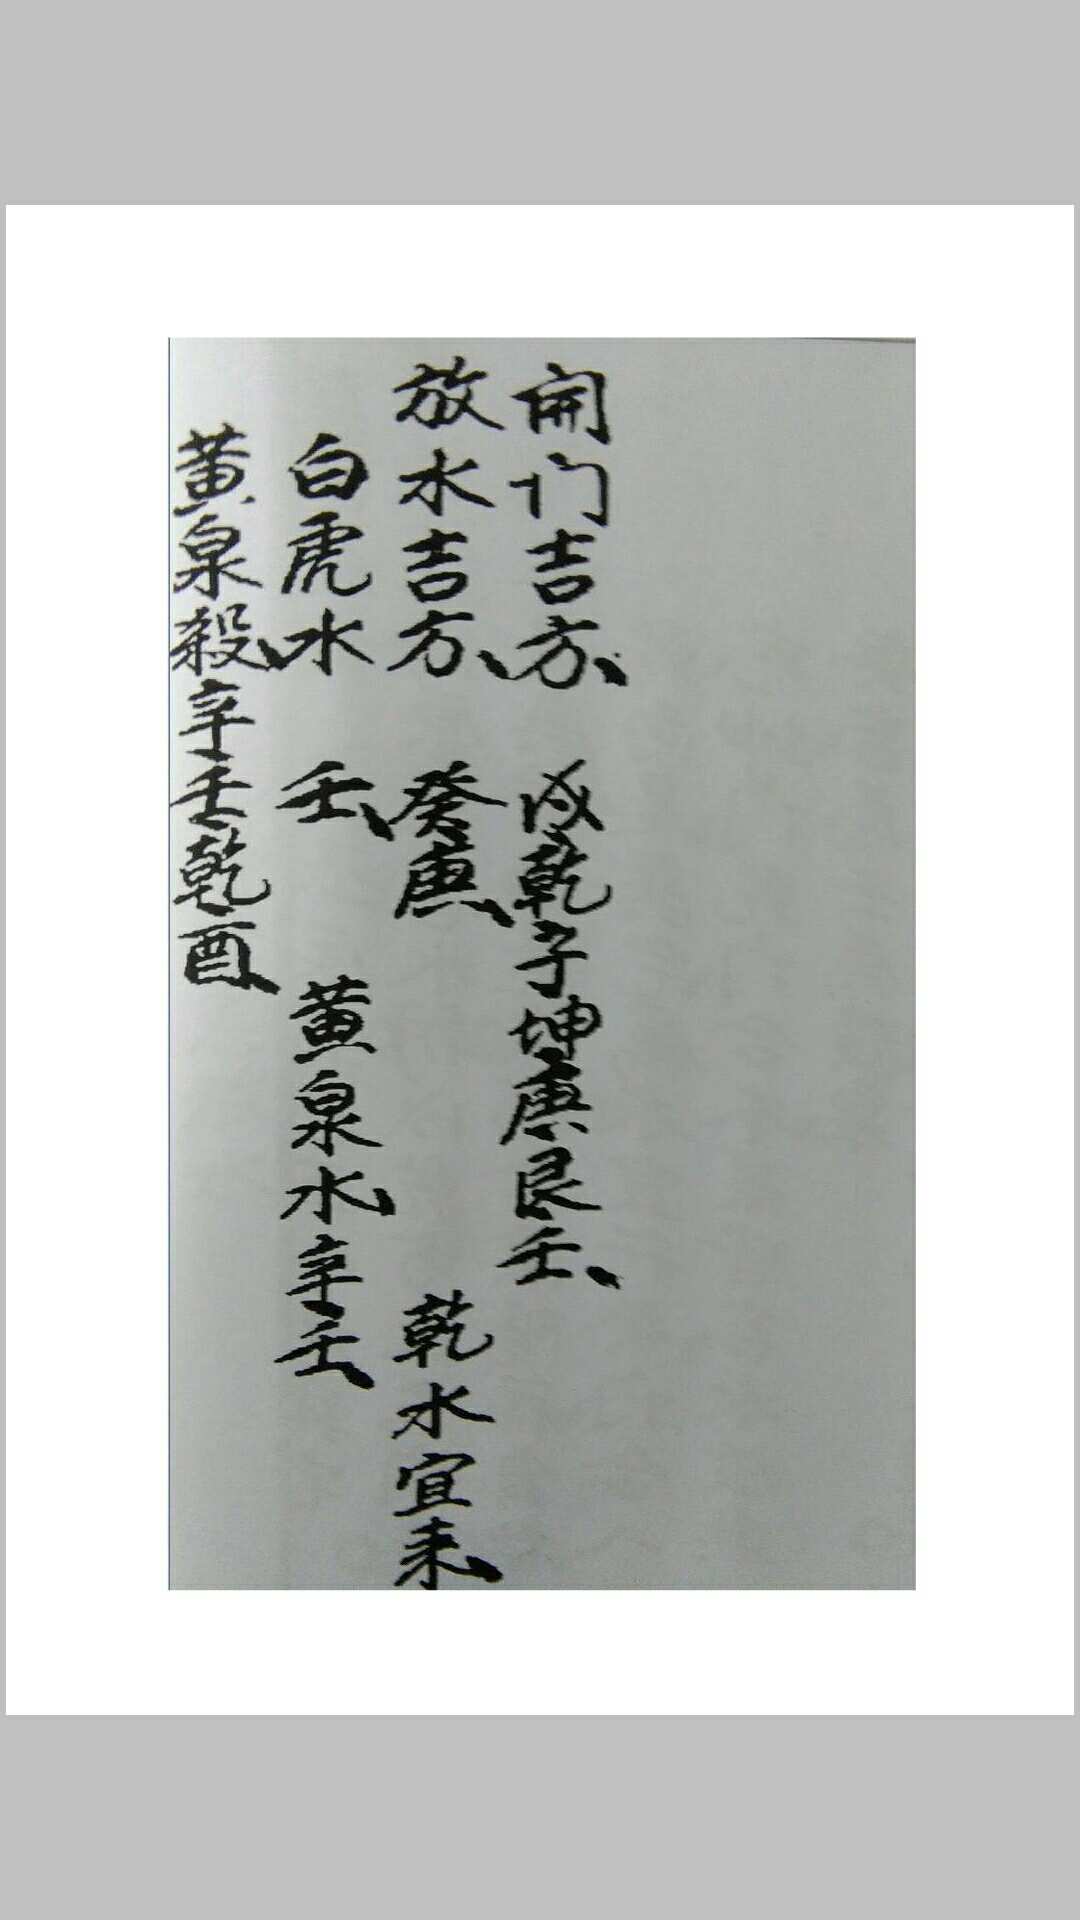 開门吉方、戌乾子坤庚艮壬、
放水吉方、癸庚、乾水宜来、
白虎水壬、黄泉水、辛壬、
黄泉殺、辛壬乾酉、